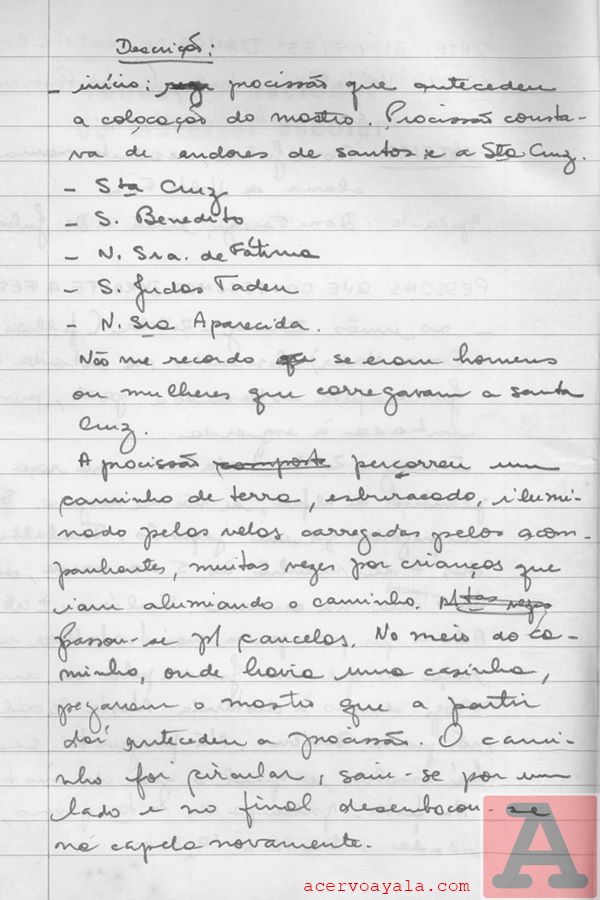 Descrição:
- início: procissão que antecedeu
a colocação do mastro. Procissão consta-
va de andores de santos e a Sta Cruz.
- Sta Cruz
- S. Benedito
- N. Sra. de Fátima
- S. Judas Tadeu
- N. Sra Aparecida.
Não me recordo se eram homens
ou mulheres que carregavam a santa
Cruz.
A procissão composta percorreu um
caminho de terra, esburacado, ilumi-
nado pelas velas carregadas pelos acom-
panhantes, muitas vezes por crianças que
iam alumiando o caminho.
Passou-se p/ cancelas. No meio do ca-
minho, onde havia uma casinha,
pegaram o mastro que a partir
daí antecedeu a procissão. O cami-
nho foi circular, saiu-se por um
lado e no final desembocou-se
na capela novamente.
A
acervoayala.com